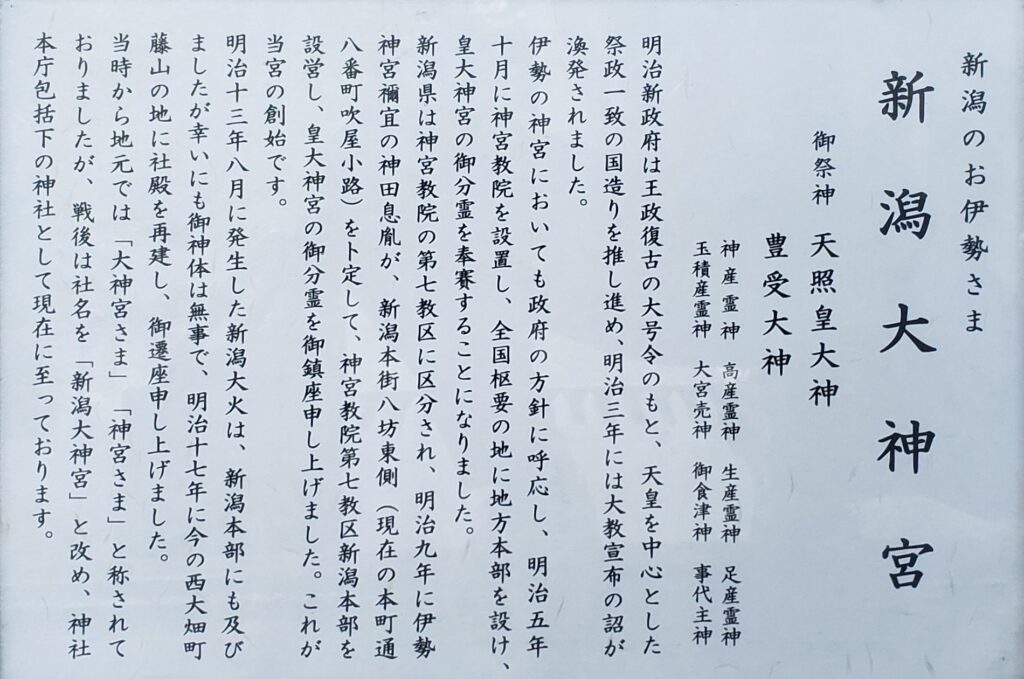 新潟のお伊勢さま
新潟大神宮
御祭神　天照皇大神
豊受大神
神産霊神　高産霊神　生産霊神　足産霊神
玉積産霊神　大宮売神　御食津神　事代主神
明治新政府は王政復古の大号令のもと、天皇を中心とした
祭政一致の国造りを推し進め、明治三年には大教宣布の詔が
渙発されました。
伊勢の神宮においても政府の方針に呼応し、明治五年
十月に神宮教院を設置し、全国枢要の地に地方本部を設け、
皇大神宮の御分霊を奉賽することになりました。
新潟県は神宮教院の第七教区に区分され、明治九年に伊勢
神宮禰宜の神田息胤が、新潟本街八坊東側（現在の本町通
八番町吹屋小路）を卜定して、神宮教院第七教区新潟本部を
設営し、皇大神宮の御分霊を御鎮座申し上げました。これが
当宮の創始です。
明治十三年八月に発生した新潟大火は、新潟本部にも及び
ましたが幸いにも御神体は無事で、明治十七年に今の西大畑町
藤山の地に社殿を再建し、御遷座申し上げました。
当時から地元では「大神宮さま」「神宮さま」と称されて
おりましたが、戦後は社名を「新潟大神宮」と改め、神社
本庁包括下の神社として現在に至っております。